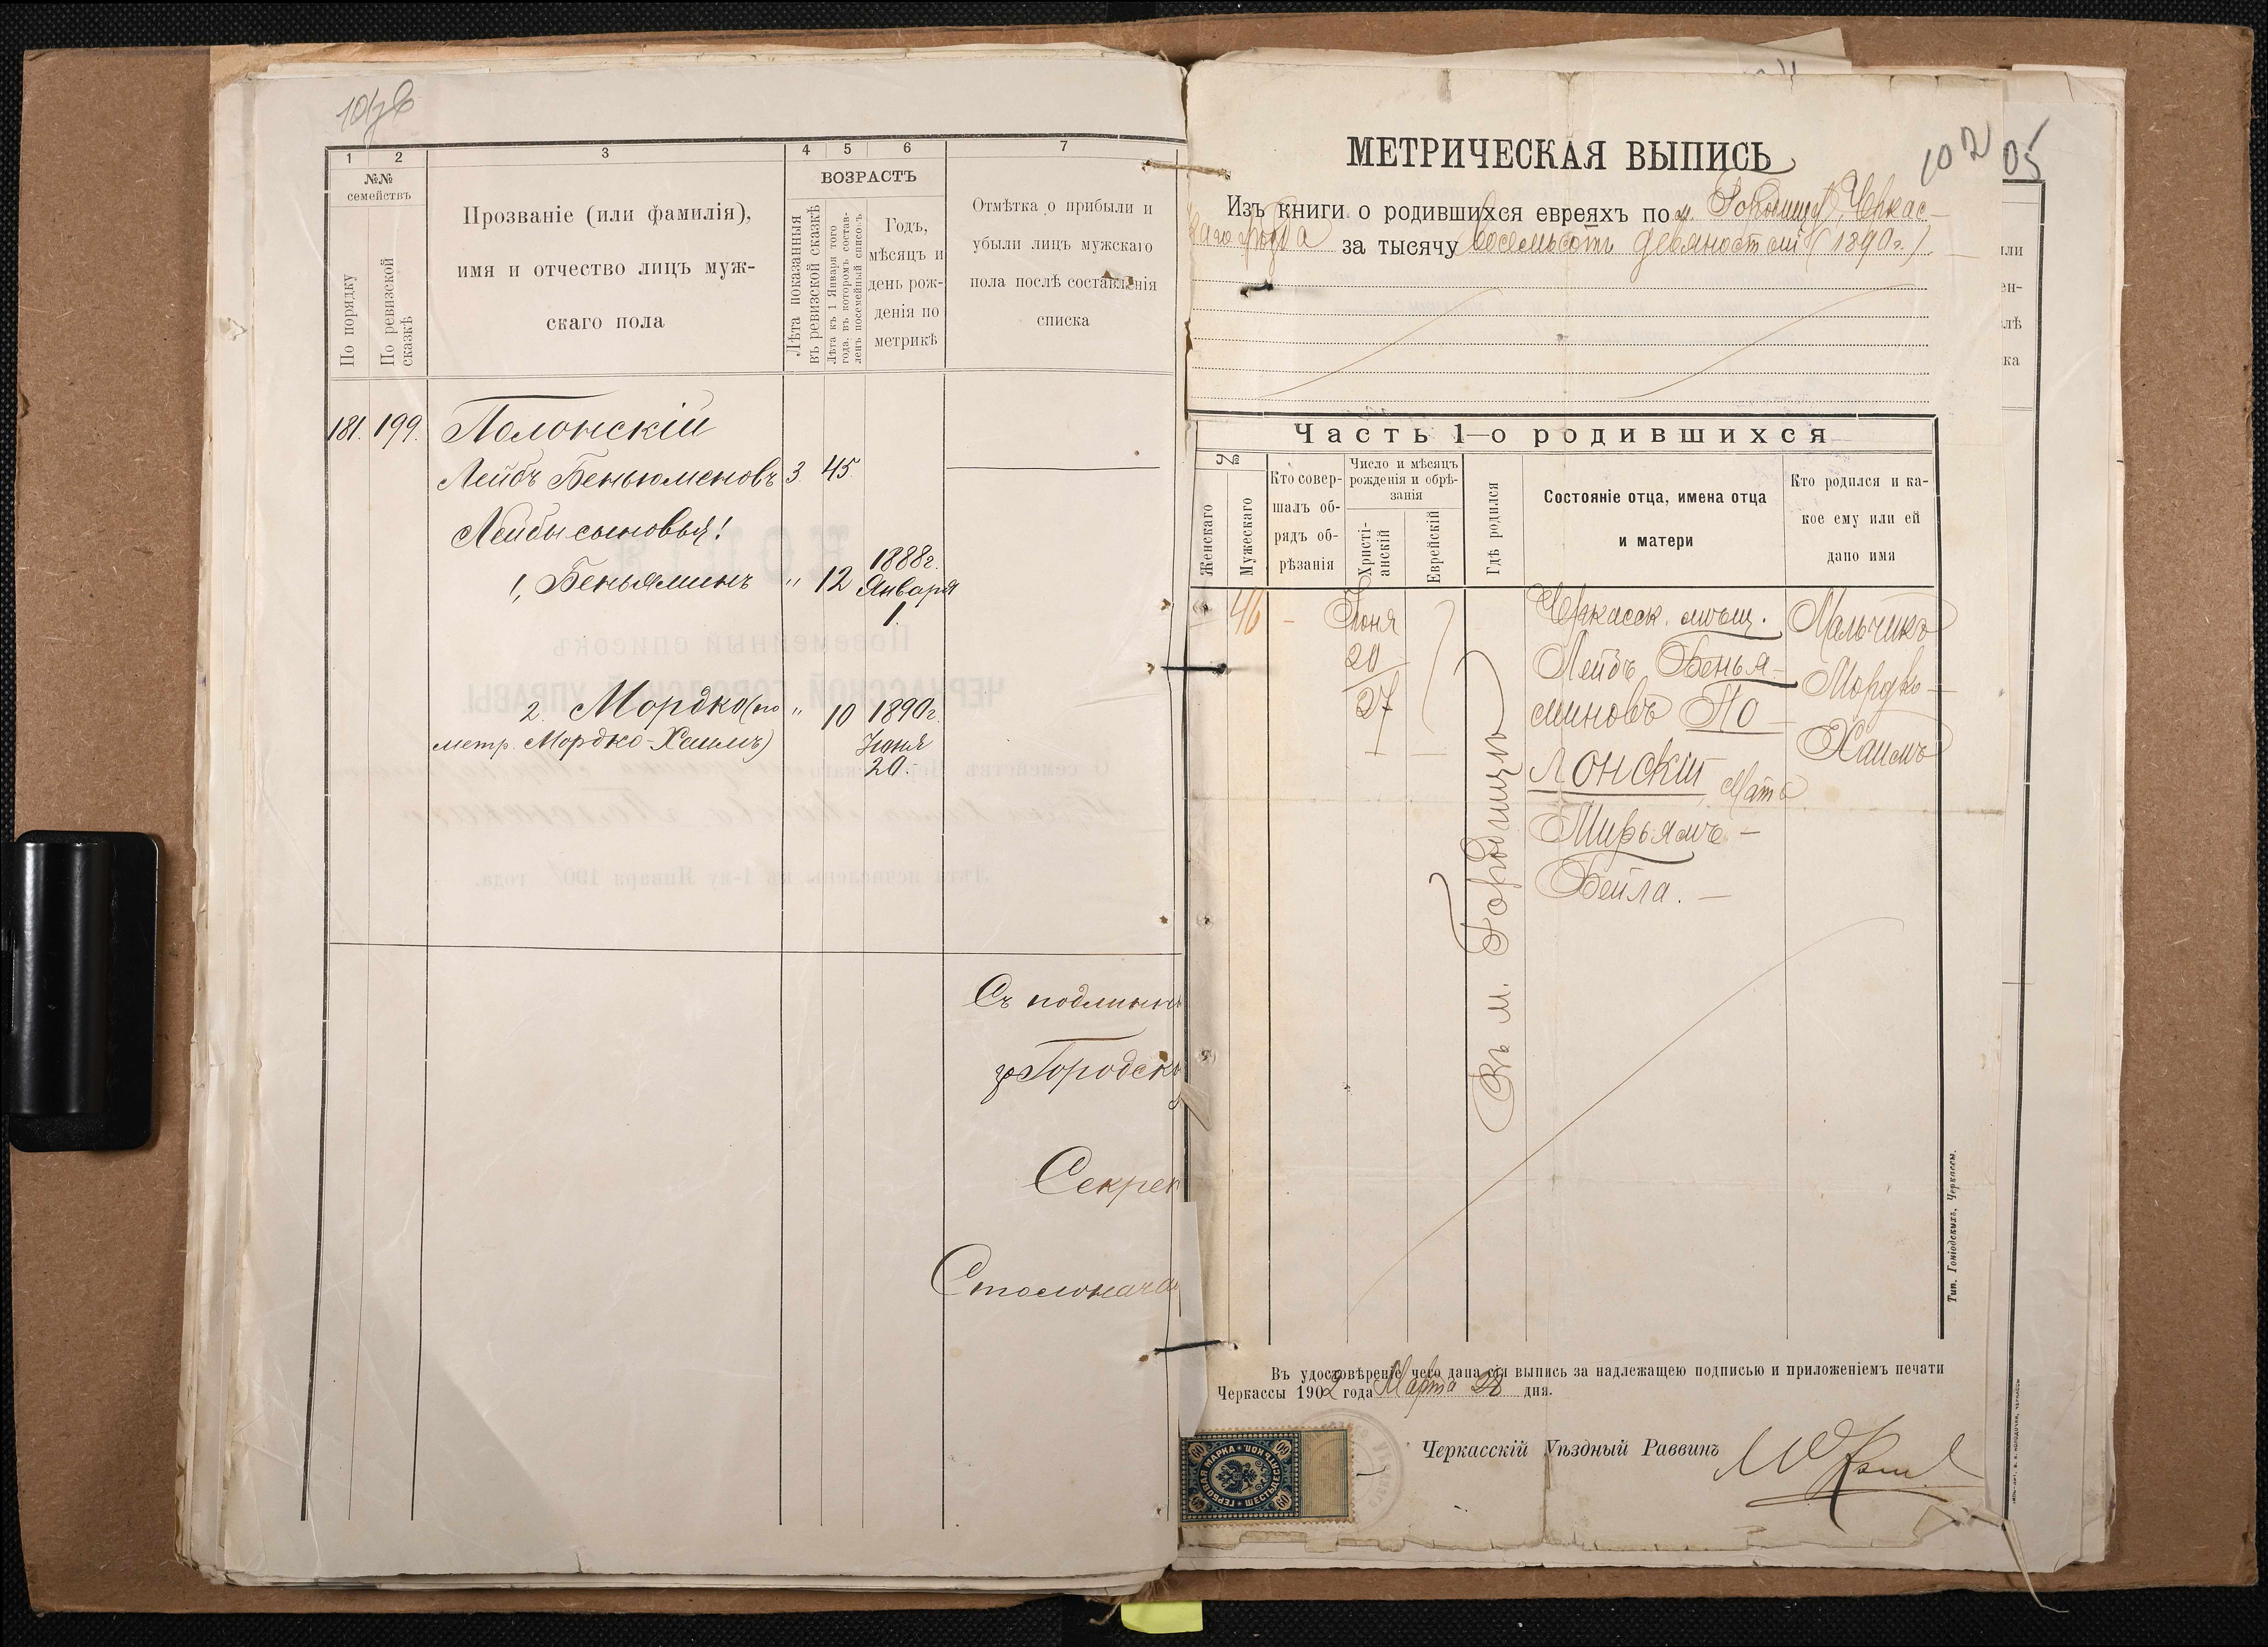 1
2
3
4
5
6
7
№№
семействъ
По порядку
По ревизской
сказкѣ
Прозваніе (или фамилія),
имя и отчество лицъ муж-
скаго пола
ВОЗРАСТЪ
Лѣта показанныя
въ ревизской сказкѣ
Лѣта къ 1 Января того
года, въ которомъ состав-
ленъ посемейный списокъ
Годъ,
мѣсяцъ и
день рож-
денія по
метрикѣ
Отмѣтка о прибыли и
убыли лицъ мужскаго
пола послѣ составленія
списка
181. 199. Полонскій
Лейбъ Беньюменовъ 3. 45.
Лейбы сыновья:
1, Беньяминъ " 12 1888г.
Января
1.
2. Мордко (по " 10 1890г.
метр. Мордко-Хаимъ) Іюня
20.
Съ подлинн
Городск
Секрет
Столонача
102
05
МЕТРИЧЕСКАЯ ВЫПИСЬ
Изъ книги о родившихся евреяхъ по м. Черкас-
скаго за тысячу восемьсотъ девяностый (1890г.)
Часть 1—о родившихся
№
Женскаго
Мужескаго
Кто совер-
шалъ об-
рядъ об-
рѣзанія
Число и мѣсяцъ
рожденія и обрѣ-
занія
Христі-
анскій
Еврейскій
Гдѣ родился
Состояніе отца, имена отца
и матери
Кто родился и ка-
кое ему или ей
дано имя
46 – Іюня
20
27
Въ м.
Черкасск. мѣщ.
Лейбъ Бенья-
миновъ По-
лонскій, Мать
Мирьямъ-
Бейла. —
Мальчикъ
Мордко-
Хаимъ
Тип. Гоніодскихъ, Черкассы.
Въ удостовѣреніе чего дана сія выпись за надлежащею подписью и приложеніемъ печати
Черкассы 1902 года Марта 28 дня.
Черкасскій Уѣздный Раввинъ
ГЕРБОВАЯ МАРКА * ШЕСТЬДЕСЯТЪ КОП.
60
60
60
60
или
ен-
лѣ
ка